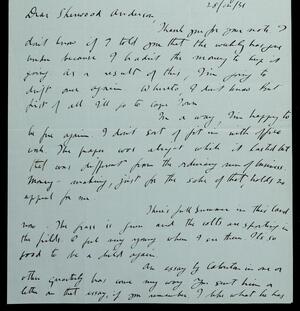 25/10/31
Dear Sherwood Anderson,
Thank you for your note. I
don't know if I told you that the weekly
under because I hadn't the money to keep it
going as a result of this, I'm going to
drift once again. Whereto, I don't know. But
first of all I'll go to Cape Town.
In a way, I'm happy to
be free again. I don't sort of fit in with office
work. The paper was alright while it lasted but
that was different from the ordinary run of business.
Money-making, just for the sake of that holds no
appeal for me.
There's full Summer in this land
now. The grass is green and the colts are sporting in
the fields. I feel my young when I see them. It's so
good to be a child again.
An essay by Calverton in one or
other quarterly has come my way. You sent him a
letter on that essay, if you remember. I like what he has